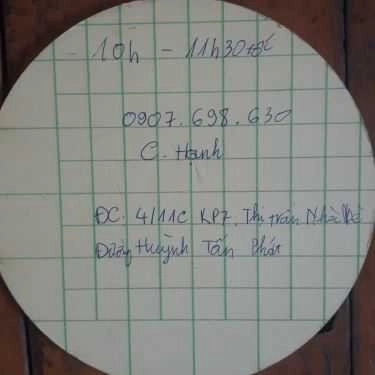 10h - 11h30
0907.698.630
C. Hạnh
ĐC. 4/11C KP7. Thị trấn Nhà Bè
Đường Huỳnh Tấn Phát